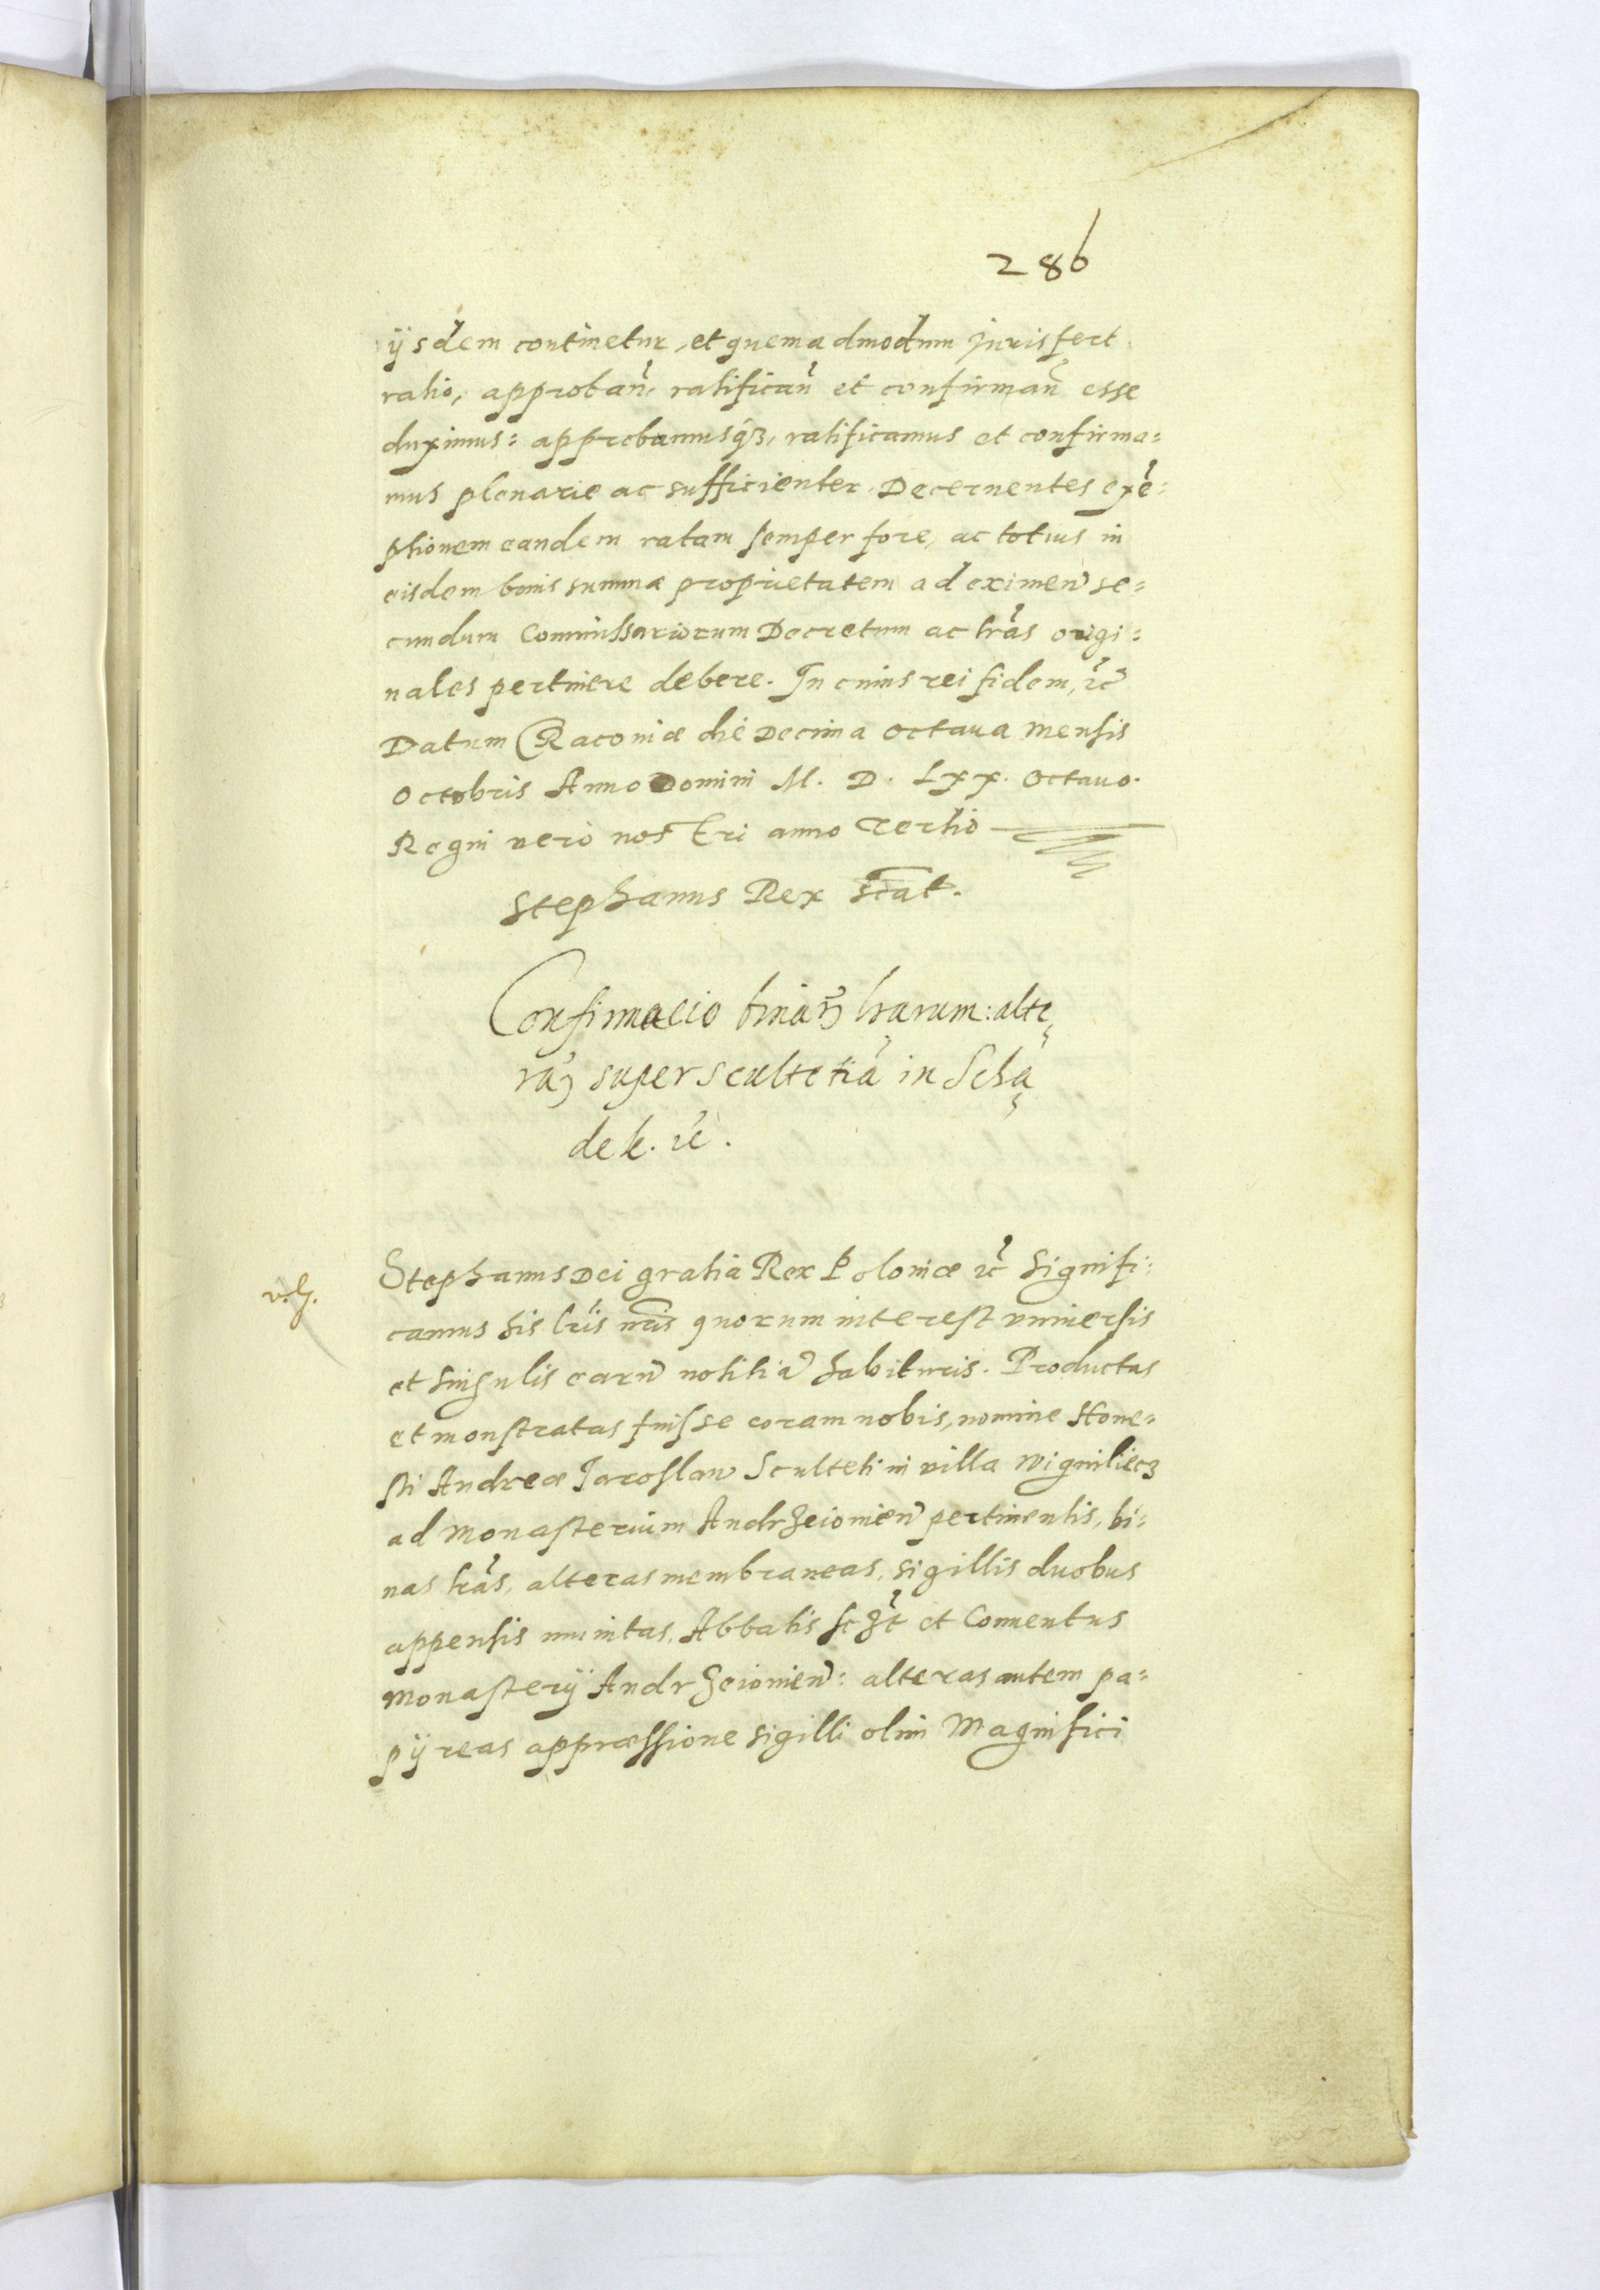 286
ijsdem continetur, et quemadmodum juris fert
ratio, approban̄, ratifican̄ et confirman̄ esse
duximus: approbamusq́ꝫ, ratificamus et confirma=
mus plenarie ac sufficienter. Decernentes exē=
ptionem eandem ratam semper fore, ac totius in
eisdem bonis summæ proprietatem ad eximen̄ se=
cundum Commissariorum Decretum ac lrās origi=
nales pertinere debere. In cuius rei fidem, ꝛc̄
Datum Cracoviæ die Decima octava mensis
octobris Anno Domini M. D. Lxx. octavo.
Regni vero nostri anno Tertio
Stephanus Rex s̄cat.
Confirmacio binaꝝ lrarum: alte=
raꝝ super scultetiā in Scha=
dek. ꝛc̄.
Stephanus Dei gratia Rex Poloniæ ꝛc̄ Signifi=
camus his lr̄is nr̄is quorum interest vniversis
et singulis earū notitiā habituris. Productas
et monstratas fuisse coram nobis, nomine Hone=
sti Andreæ Jaroslaw Sculteti in villa Wigniliecz
ad Monasterium Andrzeiovien̄ pertinentis, bi=
nas lrās, alteras membraneas, sigillis duobus
appensis munitas, Abbatis sczt̄ et Conventus
Monasterij Andrzeiovien̄: alteras autem pa=
pijreas appræssione sigilli olim Magnifici